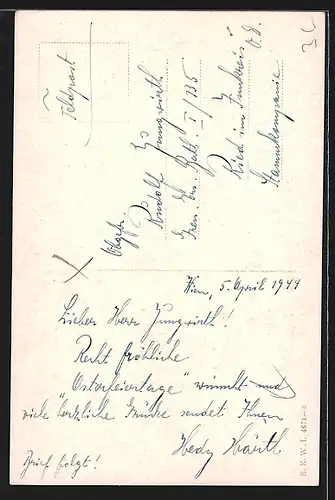 Feldpost
Obgefr.
Rudolf Jungwirth
Gren. Ers. Batl. I/135
Ried im Innkreis O.d.
Stammkompanie
Wien, 5. April 1944
Lieber Herr Jungwirth!
Recht fröhliche
"Osterfeiertage" wünscht und
viele herzliche Grüße sendet Ihnen
Hedy Hartl
Brief folgt!
B. K. W. I. 4671-5